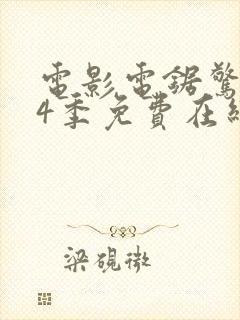 電影電鋸驚
4季免費在線
梁硯微